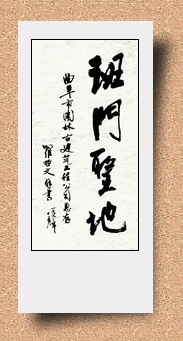 班門聖地
曲阜市園林古建筑工程公司惠存
羅哲文